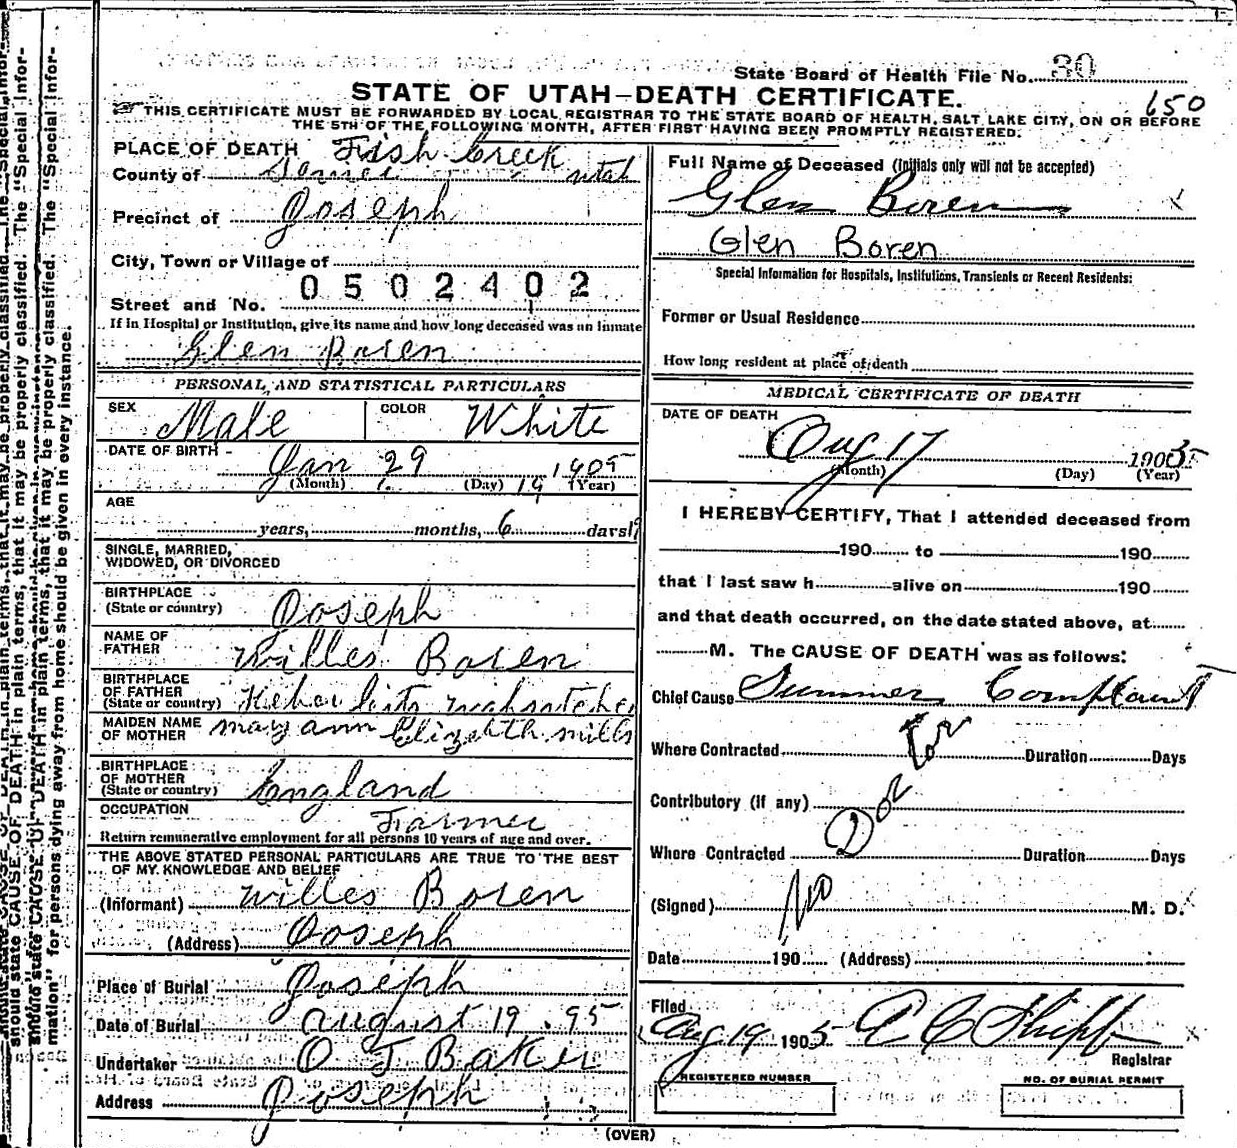 State Board of Health File No. 30
STATE OF UTAH—DEATH CERTIFICATE.
650
THIS CERTIFICATE MUST BE FORWARDED BY LOCAL REGISTRAR TO THE STATE BOARD OF HEALTH, SALT LAKE CITY, ON OR BEFORE
THE 5TH OF THE FOLLOWING MONTH, AFTER FIRST HAVING BEEN PROMPTLY REGISTERED.
PLACE OF DEATH Fish Creek
County of utah
Precinct of Joseph
City, Town or Village of
0502402
Street and No.
If in Hospital or Institution, give its name and how long deceased was an inmate
Glen Boren
PERSONAL AND STATISTICAL PARTICULARS
SEX Male COLOR White
DATE OF BIRTH - Jan 29 1905
(Month) (Day) 19 (Year)
AGE
years, months, 6 days 19
SINGLE, MARRIED,
WIDOWED, OR DIVORCED
BIRTHPLACE
(State or country) Joseph
NAME OF
FATHER Willes Boren
BIRTHPLACE
OF FATHER
(State or country)
MAIDEN NAME
OF MOTHER mary ann Elizabth mills
BIRTHPLACE
OF MOTHER
(State or country) England
OCCUPATION
Farmer
Return remunerative employment for all persons 10 years of age and over.
THE ABOVE STATED PERSONAL PARTICULARS ARE TRUE TO THE BEST
OF MY KNOWLEDGE AND BELIEF
(Informant) willes Boren
(Address) Joseph
Place of Burial Joseph
Date of Burial august 19 .95
Undertaker O T Baker
Address Joseph
Full Name of Deceased (Initials only will not be accepted)
Glen Boren
Glen Boren
Special Information for Hospitals, Institutions, Transients or Recent Residents:
Former or Usual Residence
How long resident at place of death
MEDICAL CERTIFICATE OF DEATH
DATE OF DEATH
Aug 17 1905
(Month) (Day) (Year)
I HEREBY CERTIFY, That I attended deceased from
190 to 190
that I last saw h alive on 190
and that death occurred, on the date stated above, at
M. The CAUSE OF DEATH was as follows:
Chief Cause Summer Complaint
Where Contracted Duration Days
Contributory (if any)
Where Contracted Duration Days
No Doctor
(Signed) M. D.
Date 190 (Address)
Filed
Aug 19 1905 E C Shipp
Registrar
REGISTERED NUMBER
NO. OF BURIAL PERMIT
(OVER)
should state CAUSE OF DEATH in plain terms, that it may be properly classified. The "Special Infor-
mation" for persons dying away from home should be given in every instance.